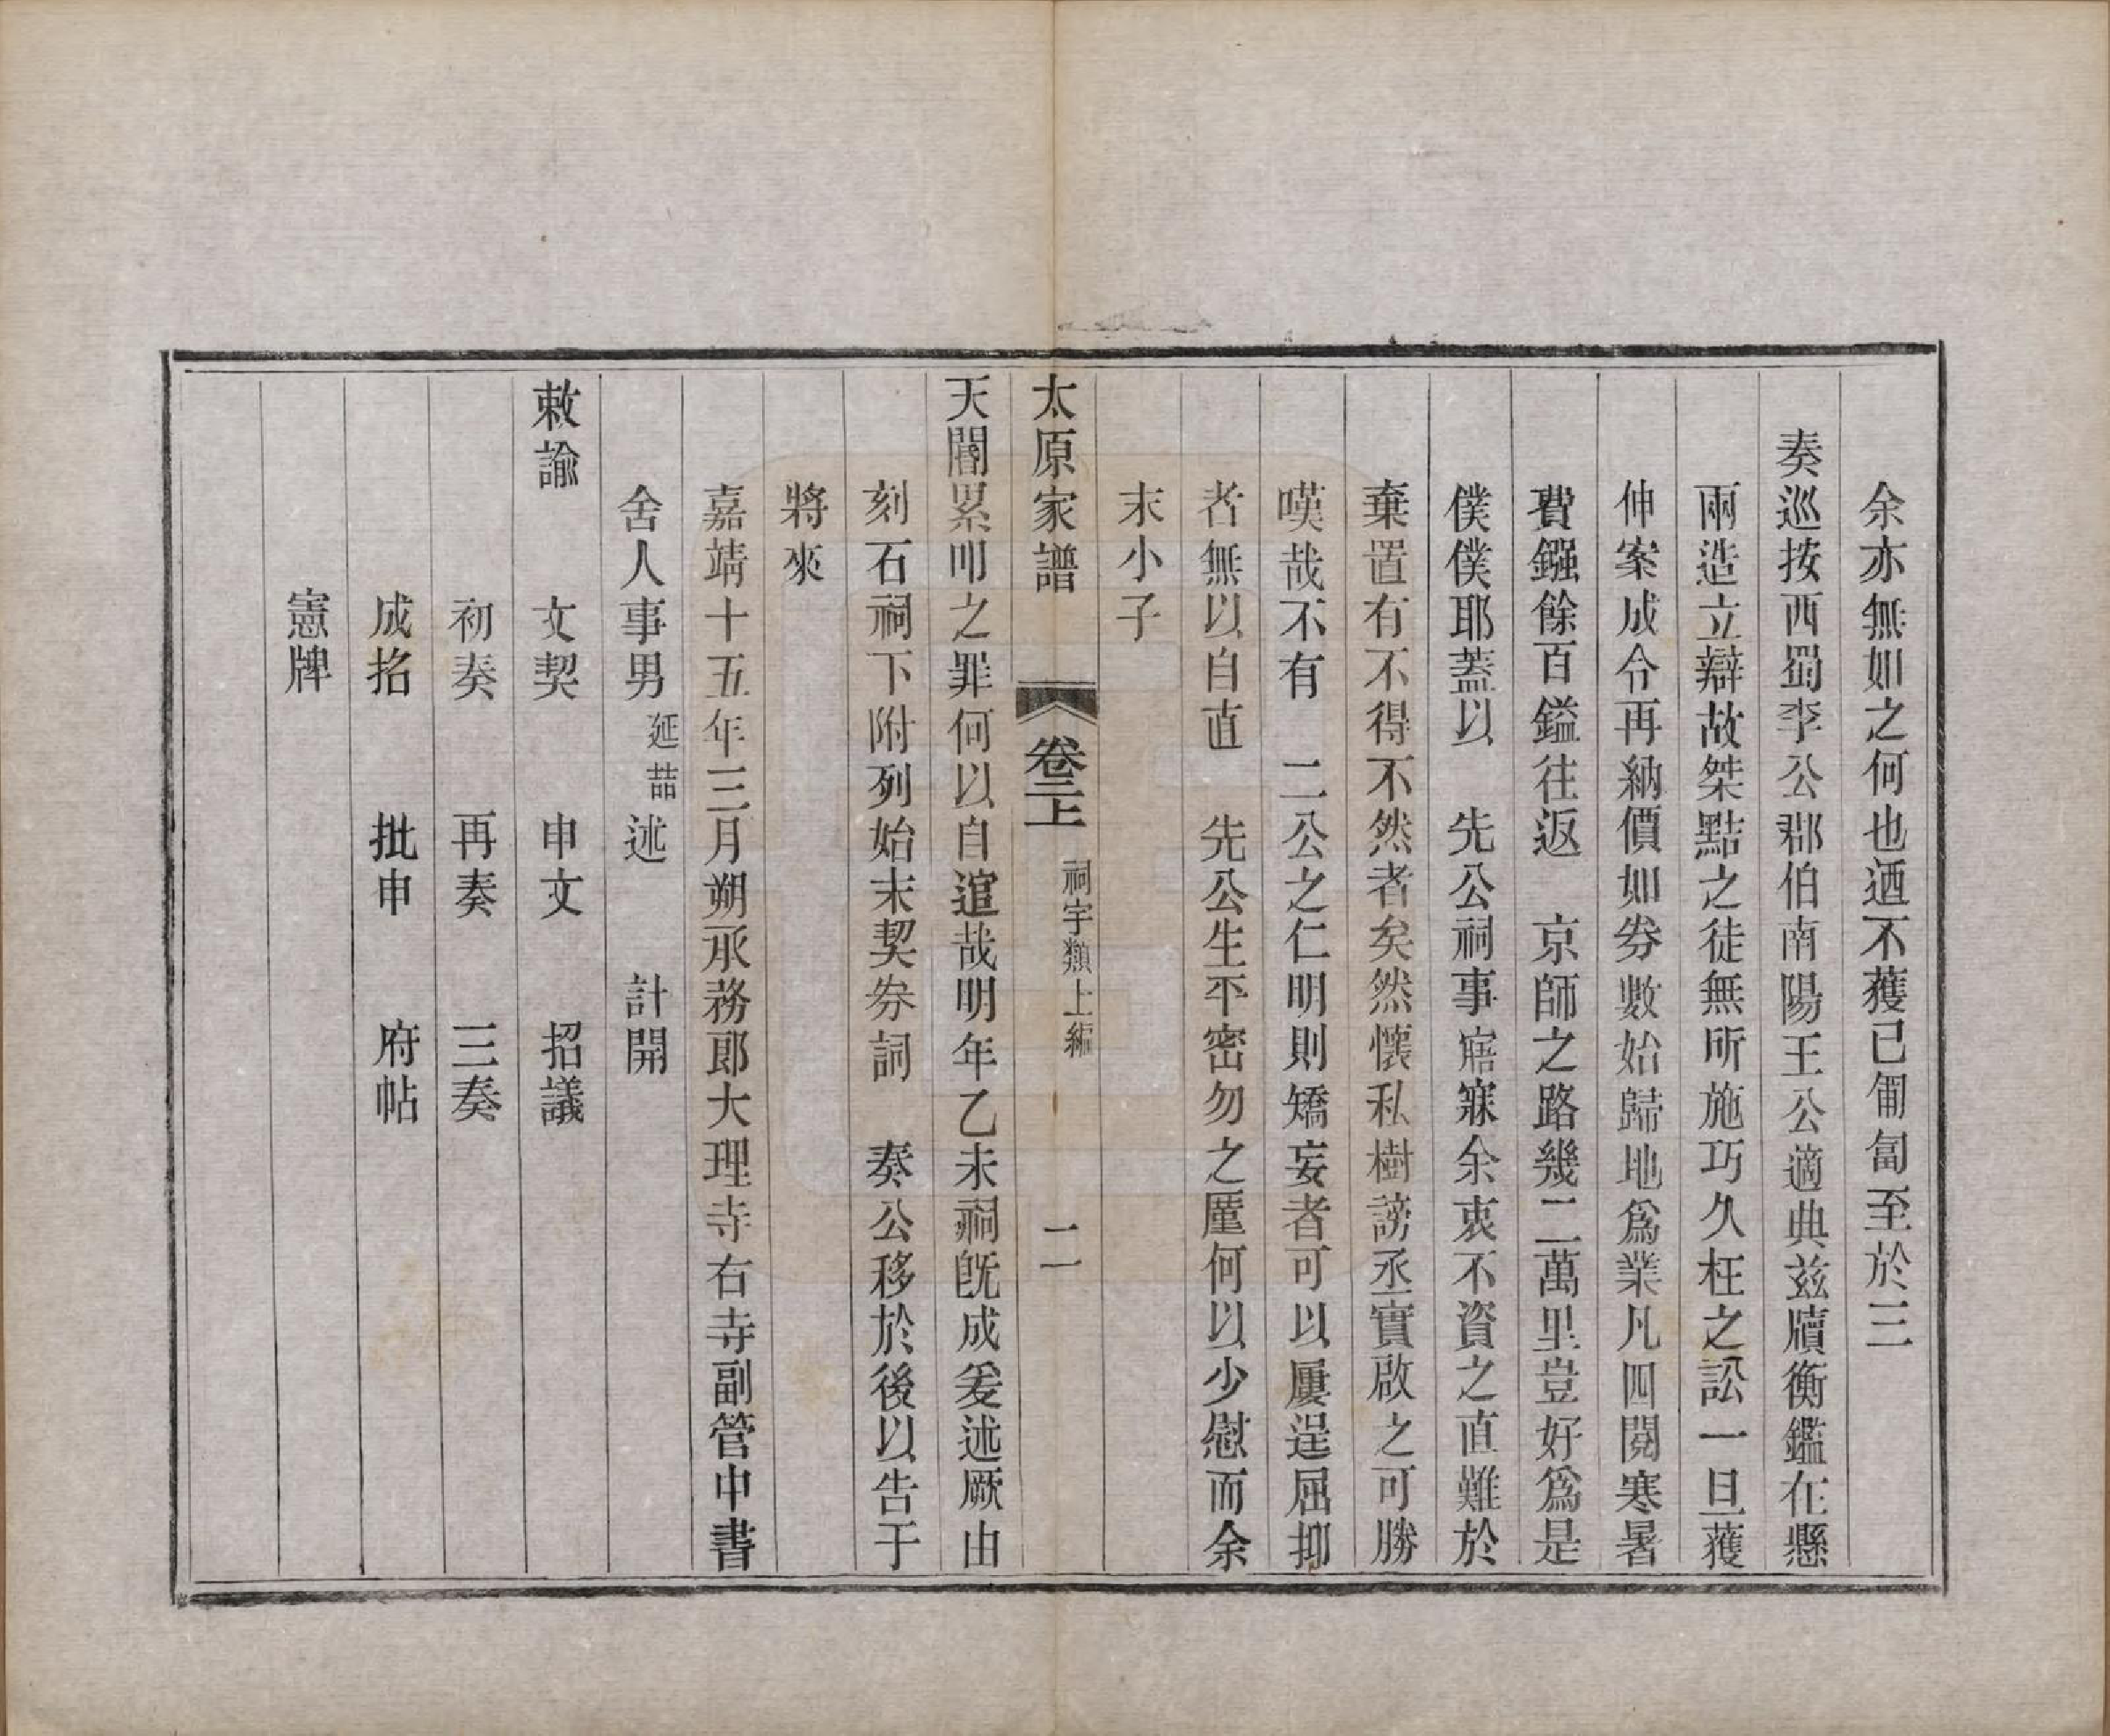 余亦無如之何也迺不獲已匍匐至於三
奏巡按西蜀李公郡伯南陽王公適典茲牘衡鑑在懸
兩造立辯故桀黠之徒無所施巧久枉之訟一旦獲
伸案成令再納價如劵數始歸地爲業凡四閱寒暑
費鏹餘百鎰往返　京師之路幾二萬里豈好爲是
僕僕耶蓋以　先公祠事寤寐余衷不資之直難於
棄置有不得不然者矣然懷私樹謗丞實啟之可勝
嘆哉不有　二公之仁明則矯妄者可以屢逞屈抑
者無以自直　先公生平密勿之厪何以少慰而余
末小子
太原家譜　卷二上　祠宇類上編　二
天閽累叩之罪何以自逭哉明年乙未祠旣成爰述厥由
刻石祠下附列始末契劵詞　奏公移於後以告于
將來
嘉靖十五年三月朔承務郎大理寺右寺副管中書
舍人事男延喆述　計開
敕諭　文契　申文　招議
初奏　再奏　三奏
成招　批申　府帖
憲牌